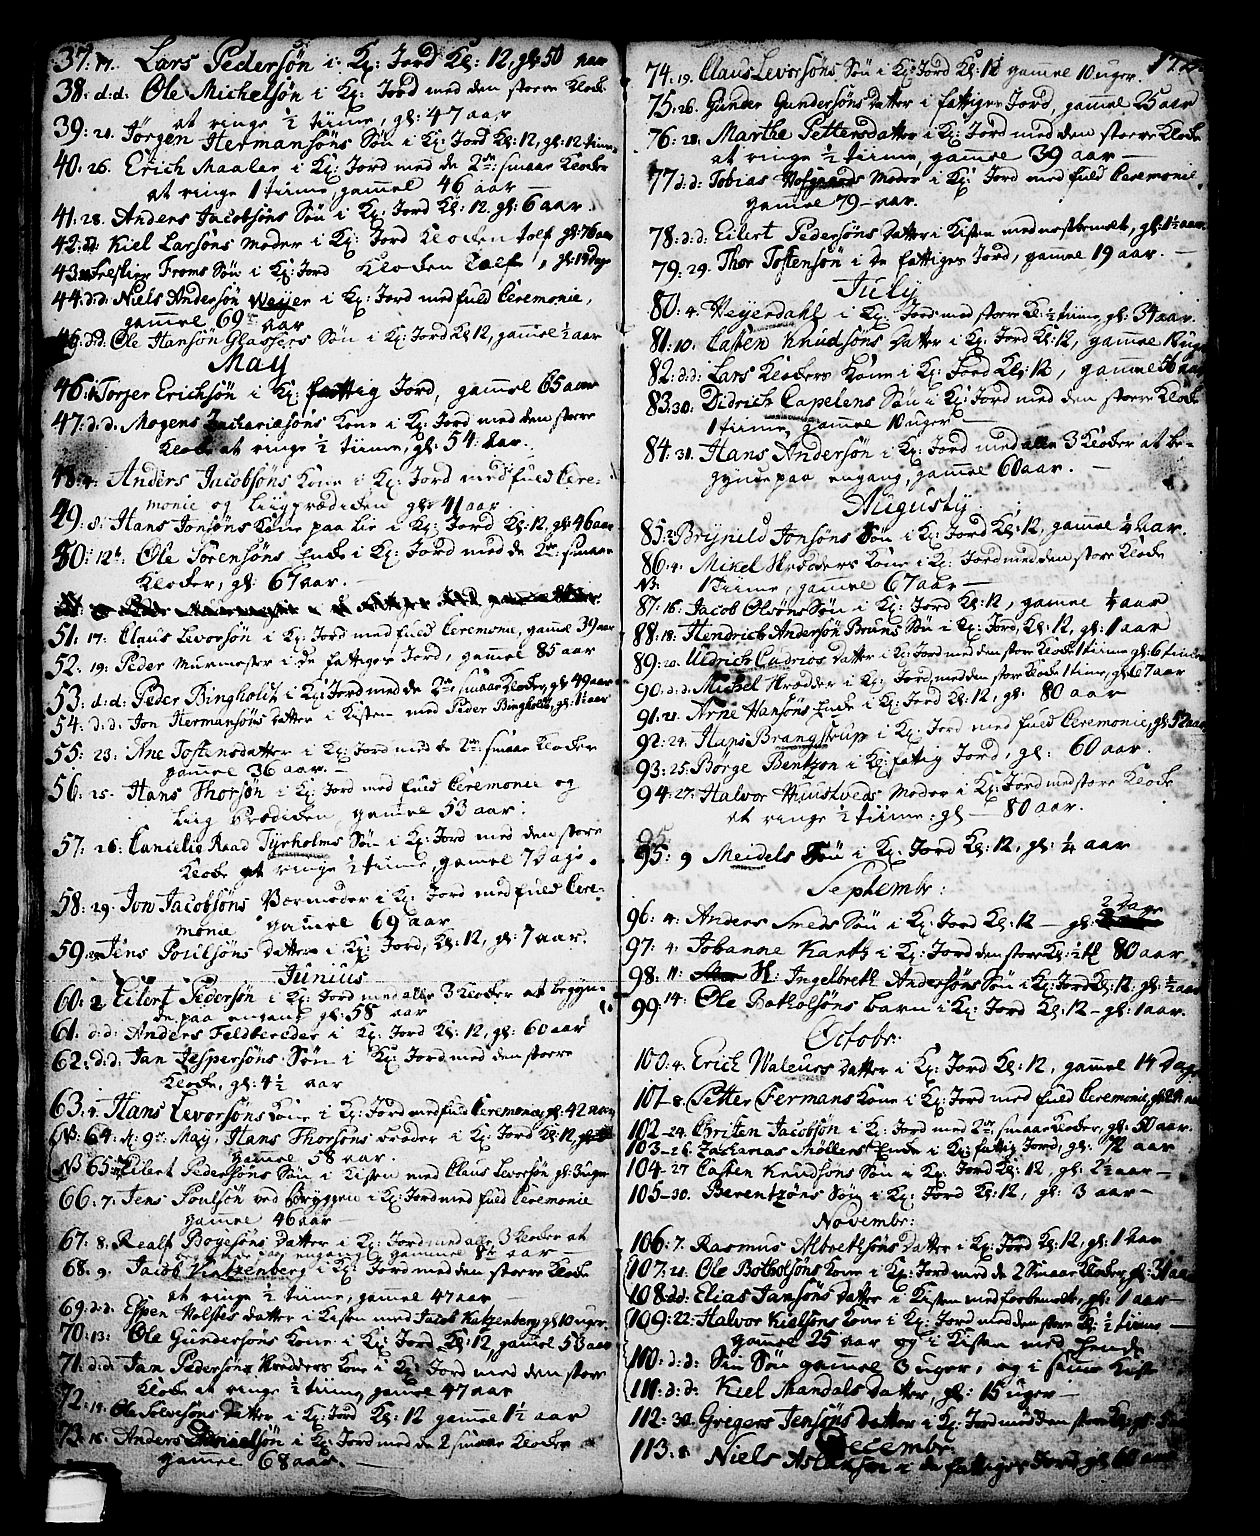 37: 17. Lars Pedersön i Kj: Jord Kl: 12, gl: 50 aar
38: d: d: Ole Michelsön i Kj: Jord med den störe Klock
at ringe ½ tiime, gl: 47 aar
39: 21. Jörgen Hermansöns Sön i Kj: Jord Kl: 12, gl: 12 tiimer
40: 26. Erich Maaler i Kj: Jord med de 2de smaae Klocker
at ringe 1 tiime, gammel 46 aar —
41: 28. Anders Jacobsöns Sön i Kj: Jord Kl: 12. gl: 6 aar
42: d: Kiel Larsöns Moder i Kj: Jord Klocken tolf gl: 76 aar
43: Froms Sön i Kj: Jord Klocken Tolf, gl: 13 dage
44: d: d: Niels Andersön Weyer i Kj: Jord med fuld Ceremonie,
gammel 69 aar
45: d: d: Ole Hansön Glassers Sön i Kj: Jord Kl: 12, gammel ½ aar
May
46: Torjer Erichsön i Kj: fattig Jord, gammel 65 aar
47: d: d: Mogens Zachariasöns Kone i Kj: Jord med den störe
Klocke at ringe ½ tiime, gl: 54 aar.
48: 4: Anders Jacobsöns Kone i Kj: Jord med fuld Cere-
monie og Liigprædicken gl: 41 aar
49: 8: Hans Jonsöns Kone paa Lie i Kj: Jord Kl: 12, gl: 46 aar
50: 12: Ole Sörensöns Encke i Kj: Jord med de 2de smaae
Klocker, gl: 67 aar. —
51: 17: Claus Levorsön i Kj: Jord med fuld Ceremonie, gammel 39 aar
52: 19: Peder Murmester i de fattiges Jord, gammel 85 aar
53: d: d: Peder Bingholtt i Kj: Jord med de 2de smaae Klocker, gl: 49 aar
54: d: d: Jon Hermansöns datter i Kisten med Peder Bingholtt, gl: 1½ aar
55: 23: Ane Tostensdatter i Kj: Jord med de 2de smaae Klocker
gammel 36 aar. —
56: 25: Hans Thorsön i Kj: Jord med fuld Ceremonie og
Liig Prædicken, gammel 53 aar:
57: 26: Cancelie Raad Tyrholms Sön i Kj: Jord med den störe
Klocke at ringe ½ tiime, gammel 7 dage.
58: 29: Jon Jacobsöns Værmoder i Kj: Jord med fuld Cere-
monie gammel 69 aar
59: Jens Poulsöns datter i Kj: Jord, Kl: 12, gl: 7 aar.
Junius
60: 2 Eilert Pedersön i Kj: Jord med alle 3 Klocker at begyn-
de paa engang gl: 58 aar
61: d: d: Anders Feldbereder i Kj: Jord Kl: 12, gl: 60 aar
62: d: d: Jan Jespersöns Sön i Kj: Jord med den störe
Klocke, gl: 4½ aar
63: 4: Hans Levorsöns Kone i Kj: Jord med fuld Ceremonie, gl: 42 aar
NB: 64: d: 9de May, Hans Thorsöns Broder i Kj: Jord Kl: 12,
gammel 58 aar.
NB 65: Eilert Pedersöns Sön i Kisten med Claus Levorsön gl: 3 uger
66: 7: Jens Poulsön ved Bryggen i Kj: Jord med fuld Ceremonie
gammel 46 aar —
67: 8: Realf Boyesöns datter i Kj: Jord med alle 3 Klocker at
begynde paa engang, gammel 8½ aar —
68: 9: Jacob Kitzenberg i Kj: Jord med den störe Klocke
at ringe ½ tiime, gammel 47 aar —
69: d: d: Espen Holstes datter i Kisten med Jacob Kitzenberg, gl: 10 uger.
70: 13: Ole Gundersöns Kone i Kj: Jord Kl: 12 gammel 53 aar
71: d: d: Jan Pedersöns Skredders Kone i Kj: Jord med den störe
Klocke at ringe ½ tiime, gamel 47 aar
72: 14: Ole Solvesöns datter i Kj: Jord Kl: 12 gammel 1½ aar
73: 15: Anders Danielsön i Kj: Jord med de 2 smaae Klocker
gammel 68 aar. —
74: 19. Claus Levorsöns Sön i Kj: Jord Kl: 12 gammel 10 uger.
75: 26: Gunder Gundersöns datter i fattiges Jord, gammel 25 aar
76: 28: Marthe Pettersdatter i Kj: Jord med den störe Klocke
at ringe ½ tiime, gammel 39 aar —
77 d: d: Tobias Hofgaards Moder i Kj: Jord med fuld Ceremonie
gamel 79 — aar.
78: d: d: Eilert Pedersöns datter i Kisten med næstbemælt, gl: 1½ aar
79: 29. Thor Tostensön i De fattiges Jord, gammel 19 aar. —
July
80: 4: Heyerdahl i Kj: Jord med störe Kl: ½ tiime, gl: 34 aar.
81: 10: Casten Knudsöns datter i Kj: Jord Kl: 12, gammel 12 uger
82: d: d: Lars Klockers Kone i Kj: Jord Kl: 12, gammel 56 aar
83: 30: Didrich Capelens Sön i Kj: Jord med den störe Klocke
1 tiime, gammel 10 uger —
84: 31. Hans Andersön i Kj: Jord med alle 3 Klocker at be-
gynde paa engang, gammel 60 aar. —
Augusty
85: 2: Brynild Jonsöns Sön i Kj: Jord Kl: 12, gammel ¼ aar.
86: 4: Mikel Skredders Kone i Kj: Jord med den störe Klocke
NB: 1 tiime, gammel 67 aar —
87: 16: Jacob Olsöns Sön i Kj: Jord Kl: 12, gamel ¼ aar
88: 18: Hendrich Andersön Bruns Sön i Kj: Jord, Kl: 12, gl: 1 aar
89: 20: Uldrich Cudrios datter i Kj: Jord med den störe Klocke 1 tiime gl: 6 tiimer
90: d: d: Mickel Skrædder i Kj: Jord med den störe Klocke 1 tiime, gl: 67 aar
91: 21: Arne Hansöns Encke i Kj: Jord Kl: 12, gl: 80 aar
92: 24: Hans Brangstrup i Kj: Jord med fuld Ceremonie, gl: 52 aar
93: 25: Börge Bentzon i Kj: fattig Jord, gl: 60 aar.
94: 27: Halvor Huustveds Moder i Kj: Jord med störe Klocke
at ringe ½ tiime: gl — 80 aar.
95
95: 9 Meidels Sön i Kj: Jord Kl: 12, gl: ¼ aar
Septembr:
96: 4: Anders Smeds Sön i Kj: Jord Kl: 12 — gl: 2 Dage
97: 4: Johanne Kantz i Kj: Jord den störe Kl: ½ tl 80 aar
98: 11: N: Ingelbreth Andersöns Sön i Kj: Jord Kl: 12 gl: ½ aar
99: 14: Ole Botholsöns barn i Kj: Jord Kl: 12 — gl: 1 aar.
Octobr:
100: 4: Erich Waleurs datter i Kj: Jord Kl: 12, gammel 14 dage
101 — 8: Petter Fermans Kone i Kj: Jord med fuld Ceremonie,
102 — 24: Christen Jacobsön i Kj: Jord med 2de smaae Klocker, gl: 50 aar.
103 — 26: Zacharias Møllers Encke i Kj: fattig Jord, gl: 72 aar
104 — 27 Casten Knudsöns Sön i Kj: Jord Kl: 12, gl: 2½ aar —
105 — 30. Berentzöns Sön i Kj: Jord Kl: 12, gl: 3 aar —
Novembr:
106: 7: Rasmus Albretsöns datter i Kj: Jord Kl: 12, gl: 1 aar
107: 21: Ole Botholsöns Kone i Kj: Jord med de 2 Smaae Klocker, gl: 31 aar
108 d: d: Elias Jansöns datter i Kisten med forbemelte, gl: 1 aar —
109: 22: Halvor Kielsöns Kone i Kj: Jord med den störe Kl: ½ tiime —
gammel 25 aar og i Kisten med hende
110: d: d: Sin Sön gamel 3 uger, og i samme Kist
111: d: d: Kiel Skandals datter, gl: 15 uger —
112: 30. Gregers Jensöns datter i Kj: Jord med den störe
Decembr:
113: 8: Niels Aslaksön i de fattiges Jord gl: 60 aar